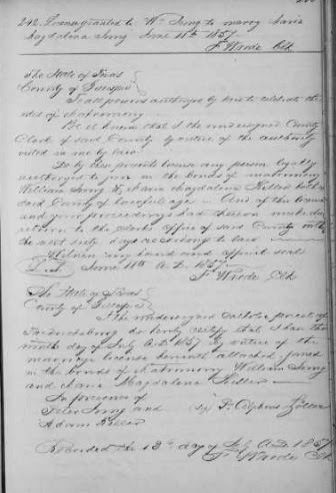 242. License granted to Wm Jung to marry Maria
Magdalena Jung June 11th 1857.
F. Wrede Clk
The State of Texas
County of Gillespie
To all persons authorized by law to celebrate the
rites of matrimony.
Be it known that I the undersigned County
Clerk of said County by virtue of the authority
vested in me by law.
Do by these presents license any person legally
authorized to join in the bonds of matrimony
William Jung & Maria Magdalena both of
said County of lawful age. And of this license
and your proceedings had thereon make due
return to the Clerks office of said County within
the next sixty days according to law
Witness my hand and official seal
June 11th A.D. 1857
F. Wrede Clk
The State of Texas
County of Gillespie
I the undersigned Catholic priest of
Fredericksburg do hereby certify that I has the
ninth day of July A.D. 1857 by virtue of the
marriage license herewith attached joined
in the bonds of matrimony William Jung
and Maria Magdalena Keller
In presence of
Peter Jung and
Adam Keller
P. Alphons
Recorded the 13th day of July A.D. 1857
F. Wrede Clk